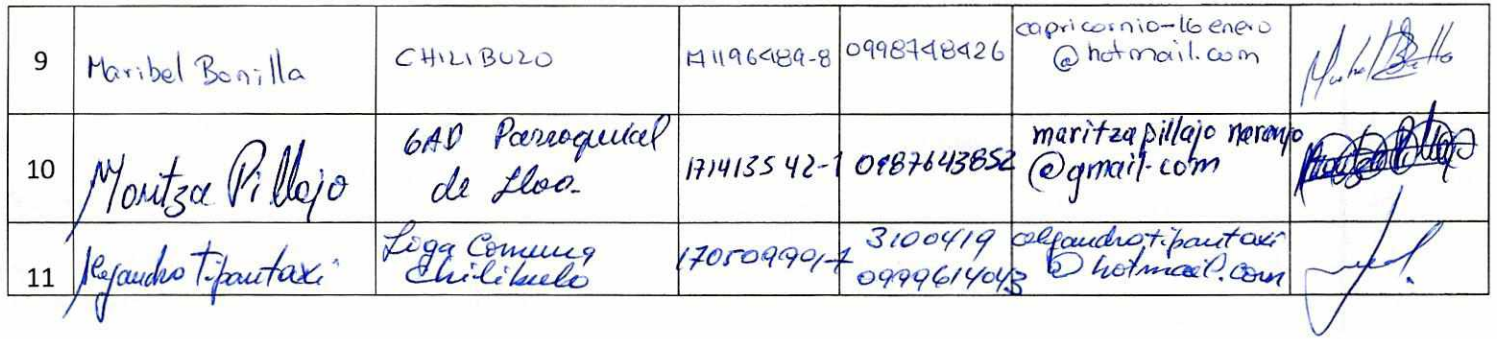 9 Maribel Bonilla CHILIBULO 171196489-8 0998748426 capricornio-16enero
@hotmail.com
10 Maritza Pillajo GAD Parroquial
de Lloa. 171413542-1 0987643852 maritzapillajo naranjo
@gmail.com
11 Alejandro Tipantaxi Liga Comuna
Chilibulo 170509991-7 3100419
0999614043 alejandrotipantaxi
@hotmail.com